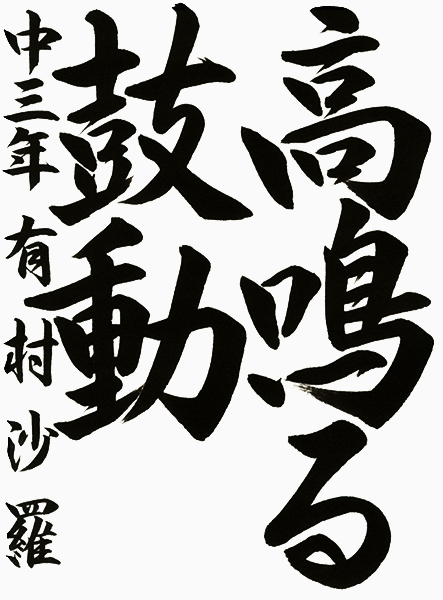 高鳴る
鼓動
中三年 有村沙羅